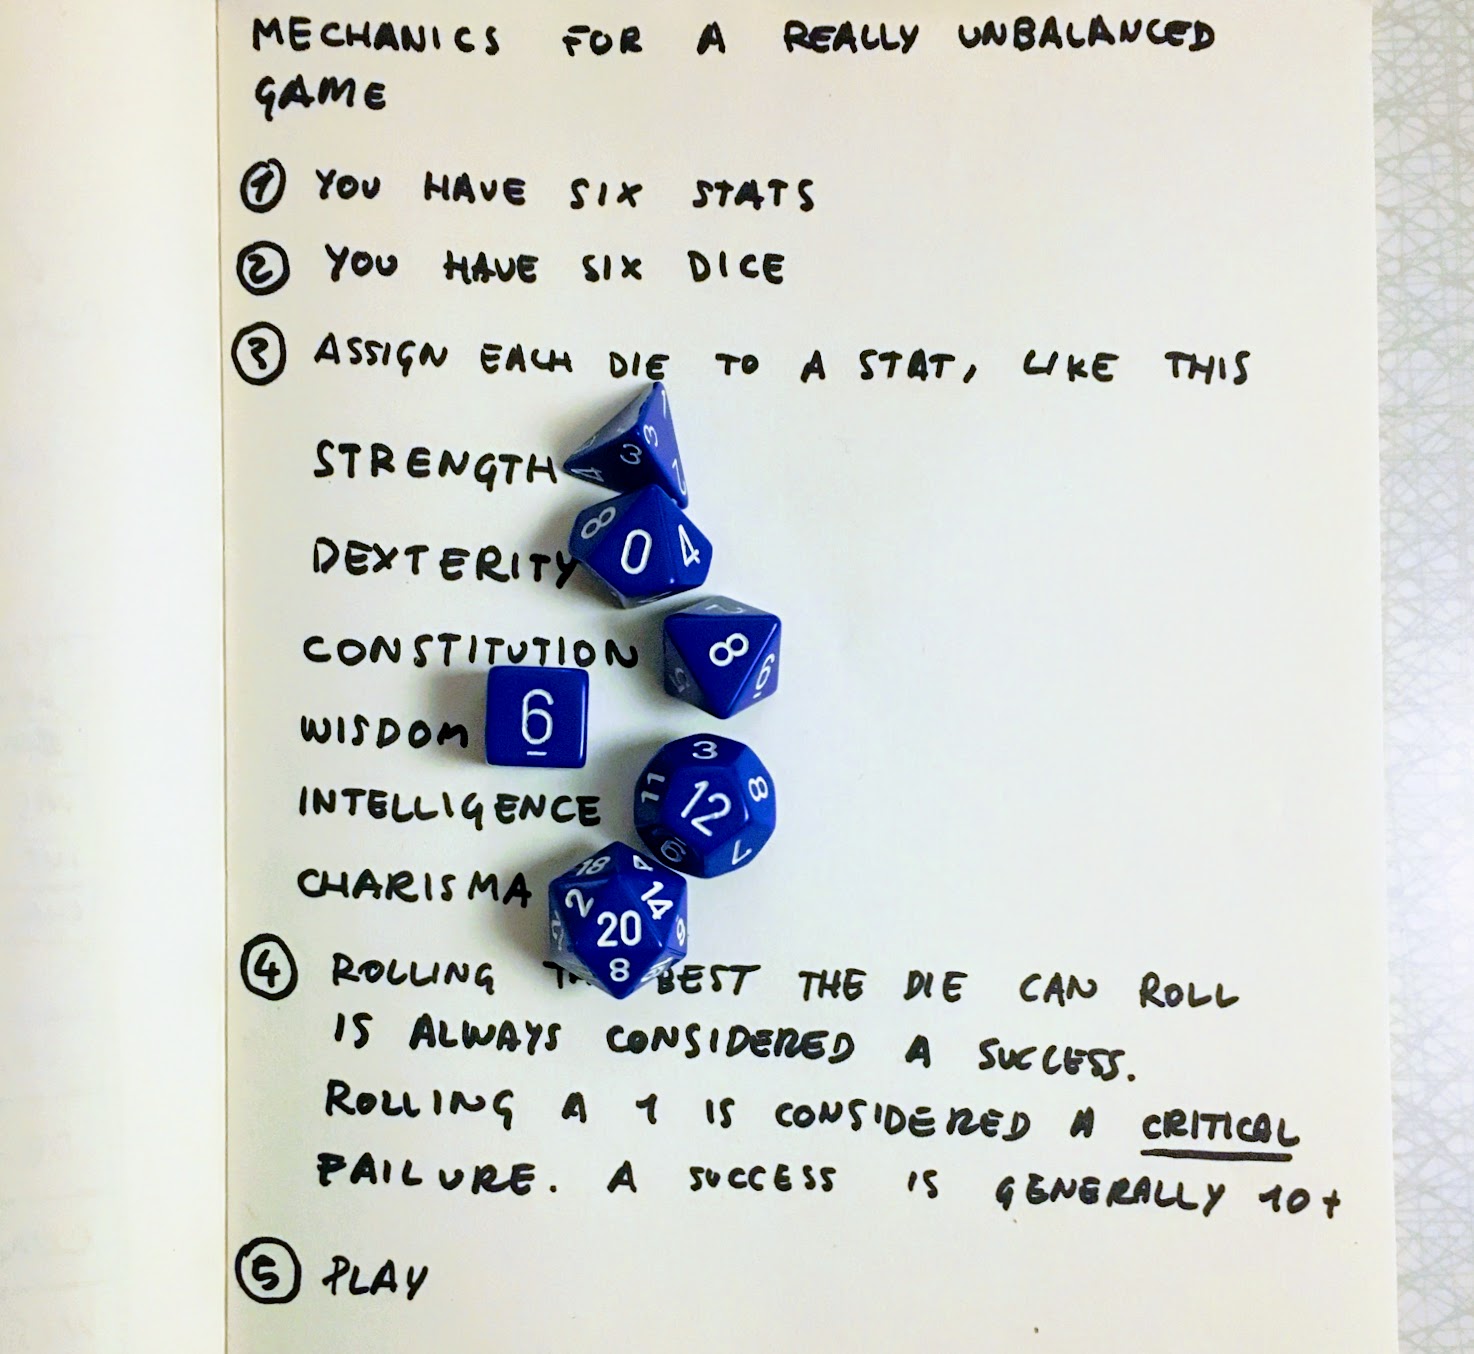 MECHANICS FOR A REALLY UNBALANCED
GAME
1 YOU HAVE SIX STATS
2 YOU HAVE SIX DICE
3 ASSIGN EACH DIE TO A STAT, LIKE THIS
STRENGTH 3 3 1 2 4
DEXTERITY 8 0 4
CONSTITUTION 8 6
WISDOM 6
INTELLIGENCE 3 11 12 8 9 7
CHARISMA 18 4 2 14 20 8
4 ROLLING BEST THE DIE CAN ROLL
IS ALWAYS CONSIDERED A SUCCESS.
ROLLING A 1 IS CONSIDERED A CRITICAL
FAILURE. A SUCCESS IS GENERALLY 10+
5 PLAY